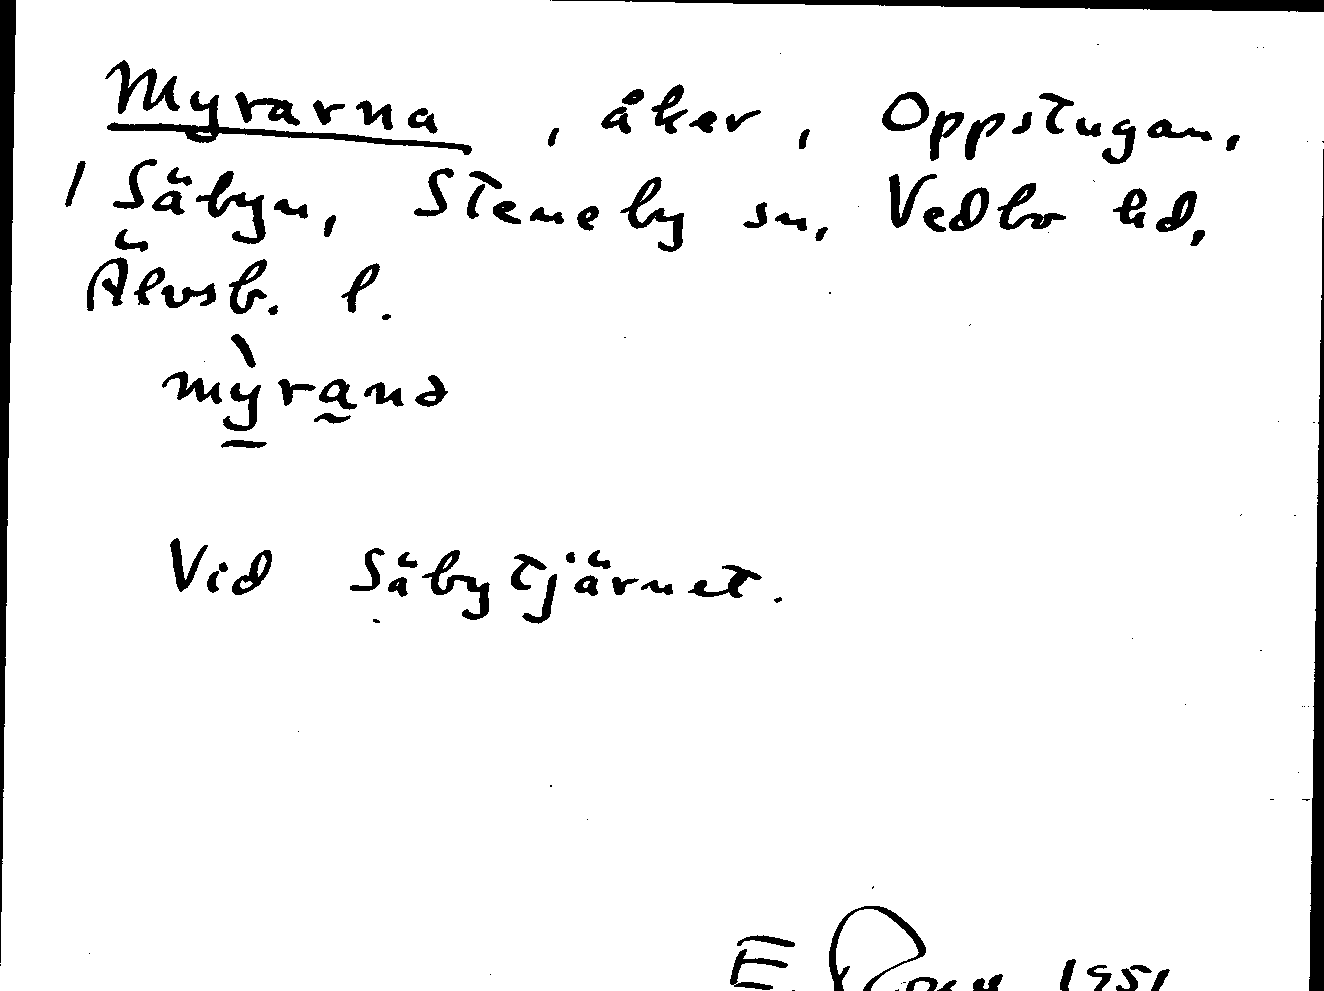 Myrarna, åker, Oppstugan,
1 Säbyn, Steneby sn, Vedbo hd,
Älvsb. l.
mỳranə
Vid Säbytjärnet.
E. 1951